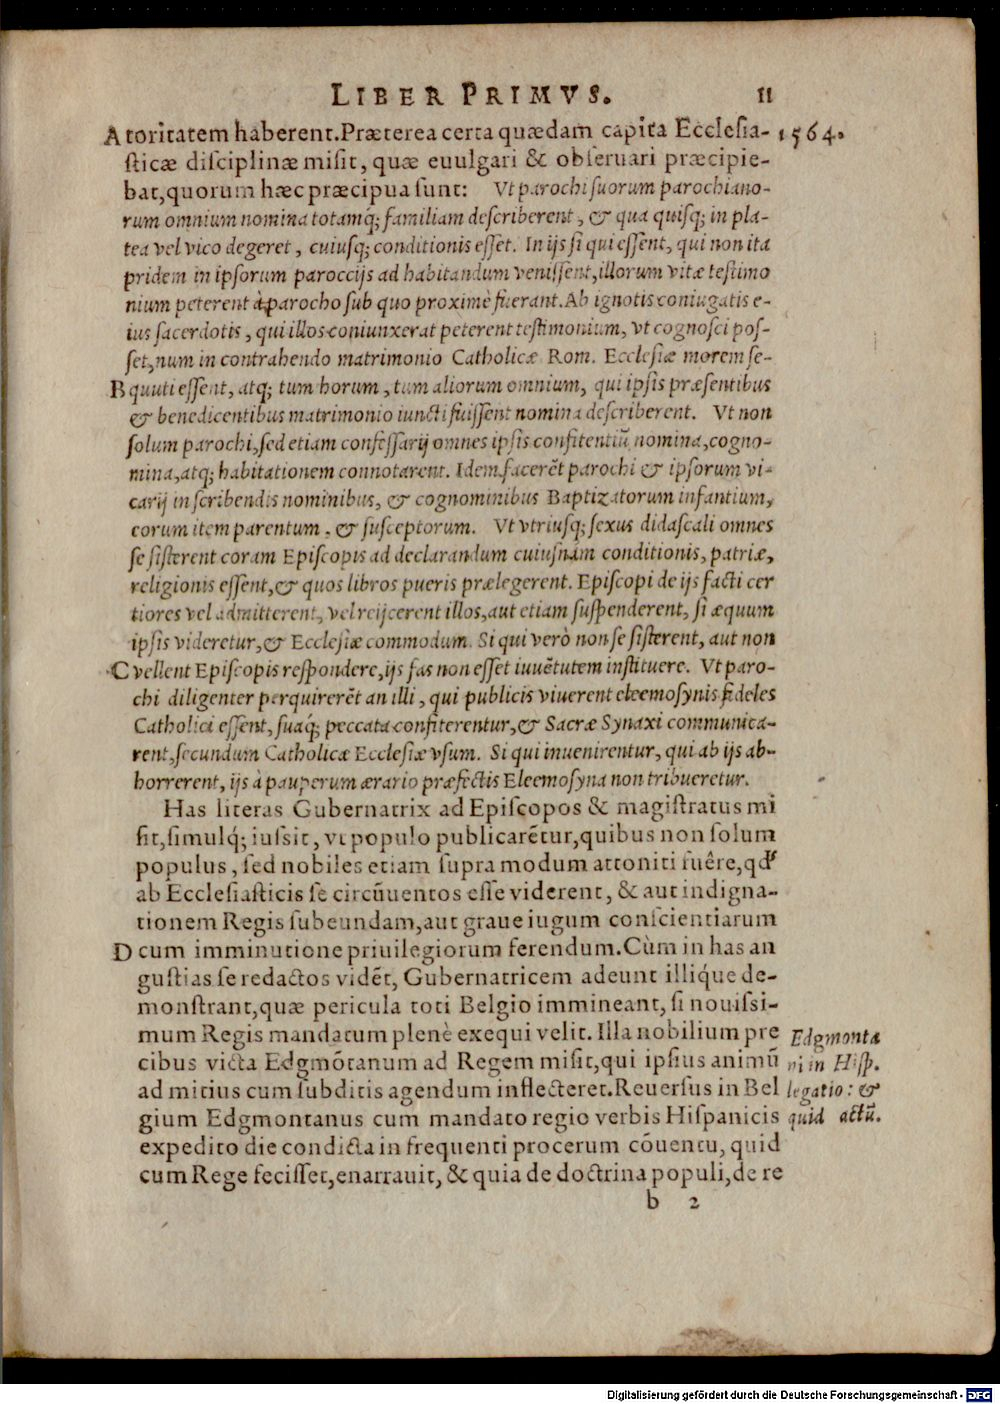 LIBER PRIMVS. 11
A toritatem haberent. Præterea certa quædam capita Ecclesia- 1564.
sticæ disciplinæ misit, quæ euulgari & obseruari præcipie-
bat, quorum hæc præcipua sunt: Vt parochi suorum parochiano-
rum omnium nomina totamq; familiam describerent, & qua quisq; in pla-
tea vel vico degeret, cuiusq; conditionis esset. In ijs si qui essent, qui non ita
pridem in ipsorum paroccijs ad habitandum venissent, illorum vitæ testimo
nium peterent à parocho sub quo proximè fuerant. Ab ignotis coniugatis e-
ius sacerdotis, qui illos coniunxerat peterent testimonium, vt cognosci pos-
set, num in contrahendo matrimonio Catholicæ Rom. Ecclesiæ morem se-
B quuti essent, atq; tum horum, tum aliorum omnium, qui ipsis præsentibus
& benedicentibus matrimonio iuncti fuissent nomina describerent. Vt non
solum parochi, sed etiam confessarij omnes ipsis confitentiū nomina, cogno-
mina, atq; habitationem connotarent. Idem facerēt parochi & ipsorum vi-
carij in scribendis nominibus, & cognominibus Baptizatorum infantium,
eorum item parentum, & susceptorum. Vt vtriusq; sexus didascali omnes
se sisterent coram Episcopis ad declarandum cuiusnam conditionis, patriæ,
religionis essent, & quos libros pueris prælegerent. Episcopi de ijs facti cer
tiores vel admitterent, vel reijcerent illos, aut etiam suspenderent, si æquum
ipsis videretur, & Ecclesiæ commodum. Si qui verò non se sisterent, aut non
C vellent Episcopis respondere, ijs fas non esset iuuētutem instituere. Vt paro-
chi diligenter perquirerēt an illi, qui publicis viuerent eleemosynis fideles
Catholici essent, suaq́; peccata confiterentur, & Sacræ Synaxi communica-
rent, secundum Catholicæ Ecclesiæ vsum. Si qui inuenirentur, qui ab ijs ab-
horrerent, ijs à pauperum ærario præfectis Eleemosyna non tribueretur.
Has literas Gubernatrix ad Episcopos & magistratus mi
sit, simulq́; iussit, vt populo publicarētur, quibus non solum
populus, sed nobiles etiam supra modum attoniti fuêre, qđ
ab Ecclesiasticis se circūuentos esse viderent, & aut indigna-
tionem Regis subeundam, aut graue iugum conscientiarum
D cum imminutione priuilegiorum ferendum. Cùm in has an
gustias se redactos vidēt, Gubernatricem adeunt illiq́ue de-
monstrant, quæ pericula toti Belgio immineant, si nouissi-
mum Regis mandatum plenè exequi velit. Illa nobilium pre
cibus victa Edgmōtanum ad Regem misit, qui ipsius animū
ad mitius cum subditis agendum inflecteret. Reuersus in Bel
gium Edgmontanus cum mandato regio verbis Hispanicis
expedito die condicta in frequenti procerum cōuentu, quid
cum Rege fecisset, enarrauit, & quia de doctrina populi, de re
Edgmonta
ni in Hisp.
legatio: &
quid actū.
b 2
Digitalisierung gefördert durch die Deutsche Forschungsgemeinschaft - DFG